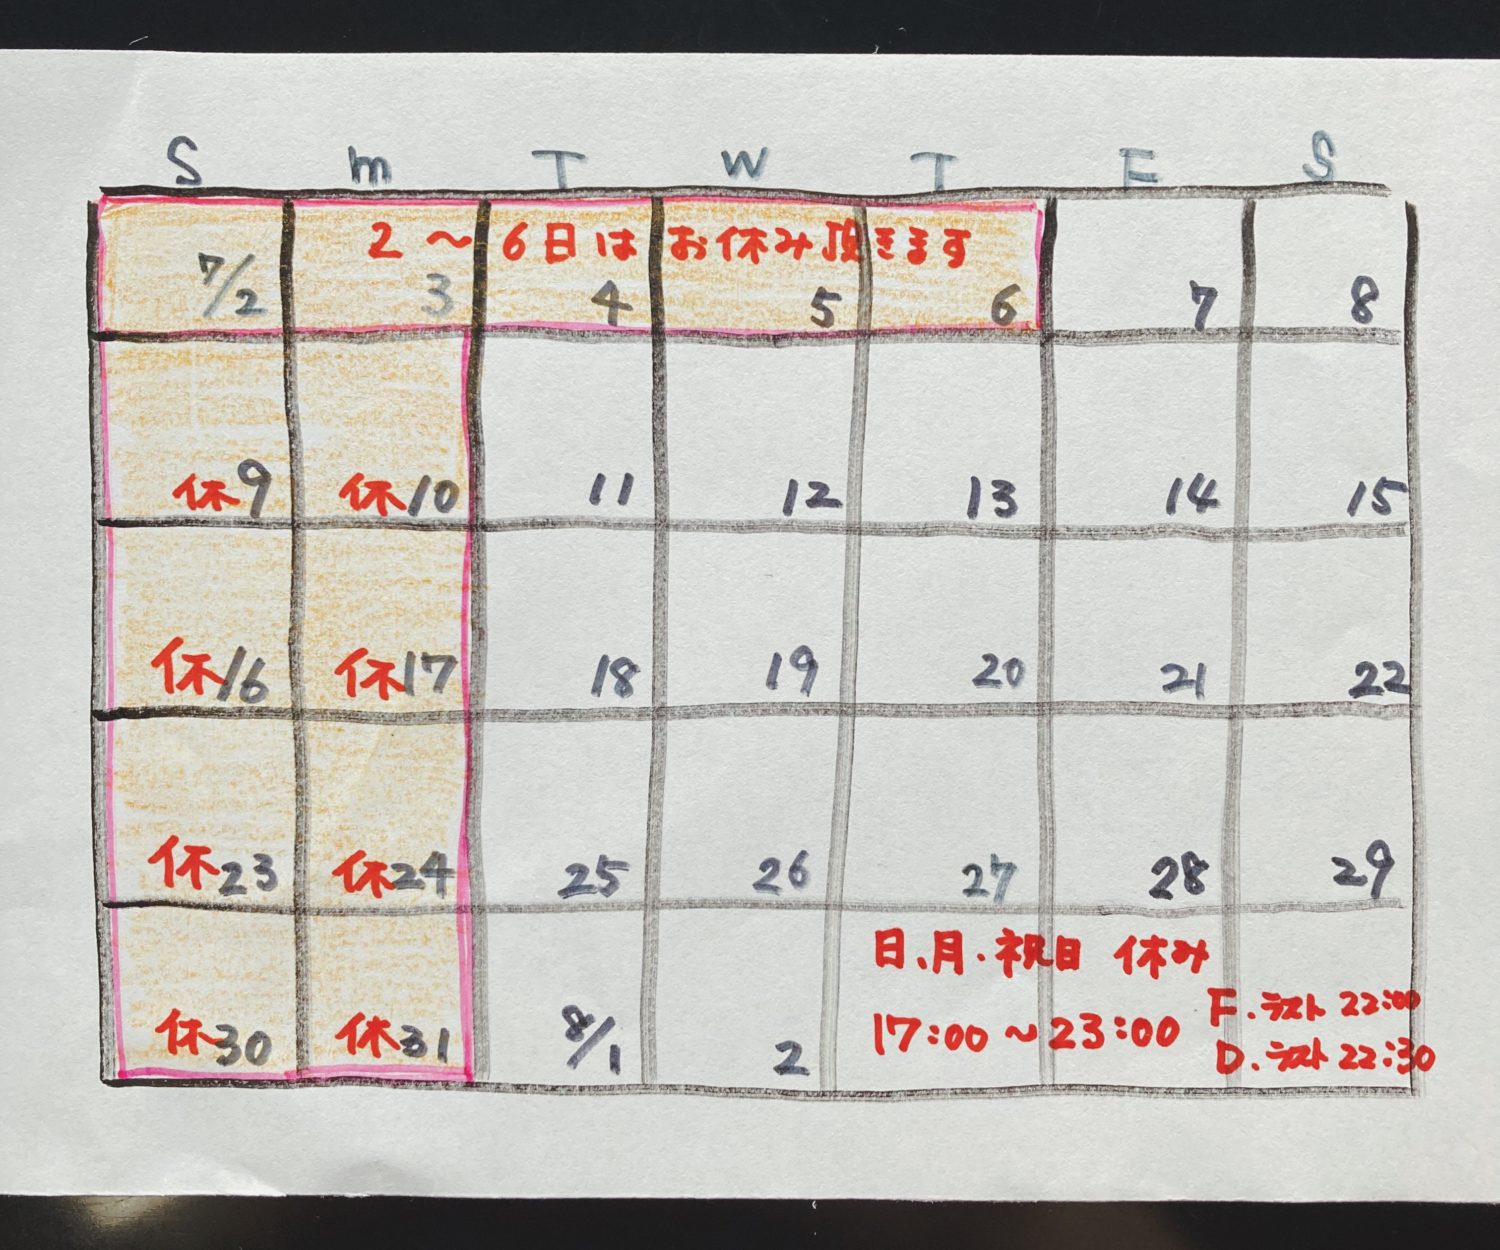 S m T W T F S
2～6日はお休み頂きます
7/2 3 4 5 6 7 8
休9 休10 11 12 13 14 15
休16 休17 18 19 20 21 22
休23 休24 25 26 27 28 29
日、月・祝日 休み
17:00～23:00
F. ラスト 22:00
D. ラスト 22:30
休30 休31 8/1 2